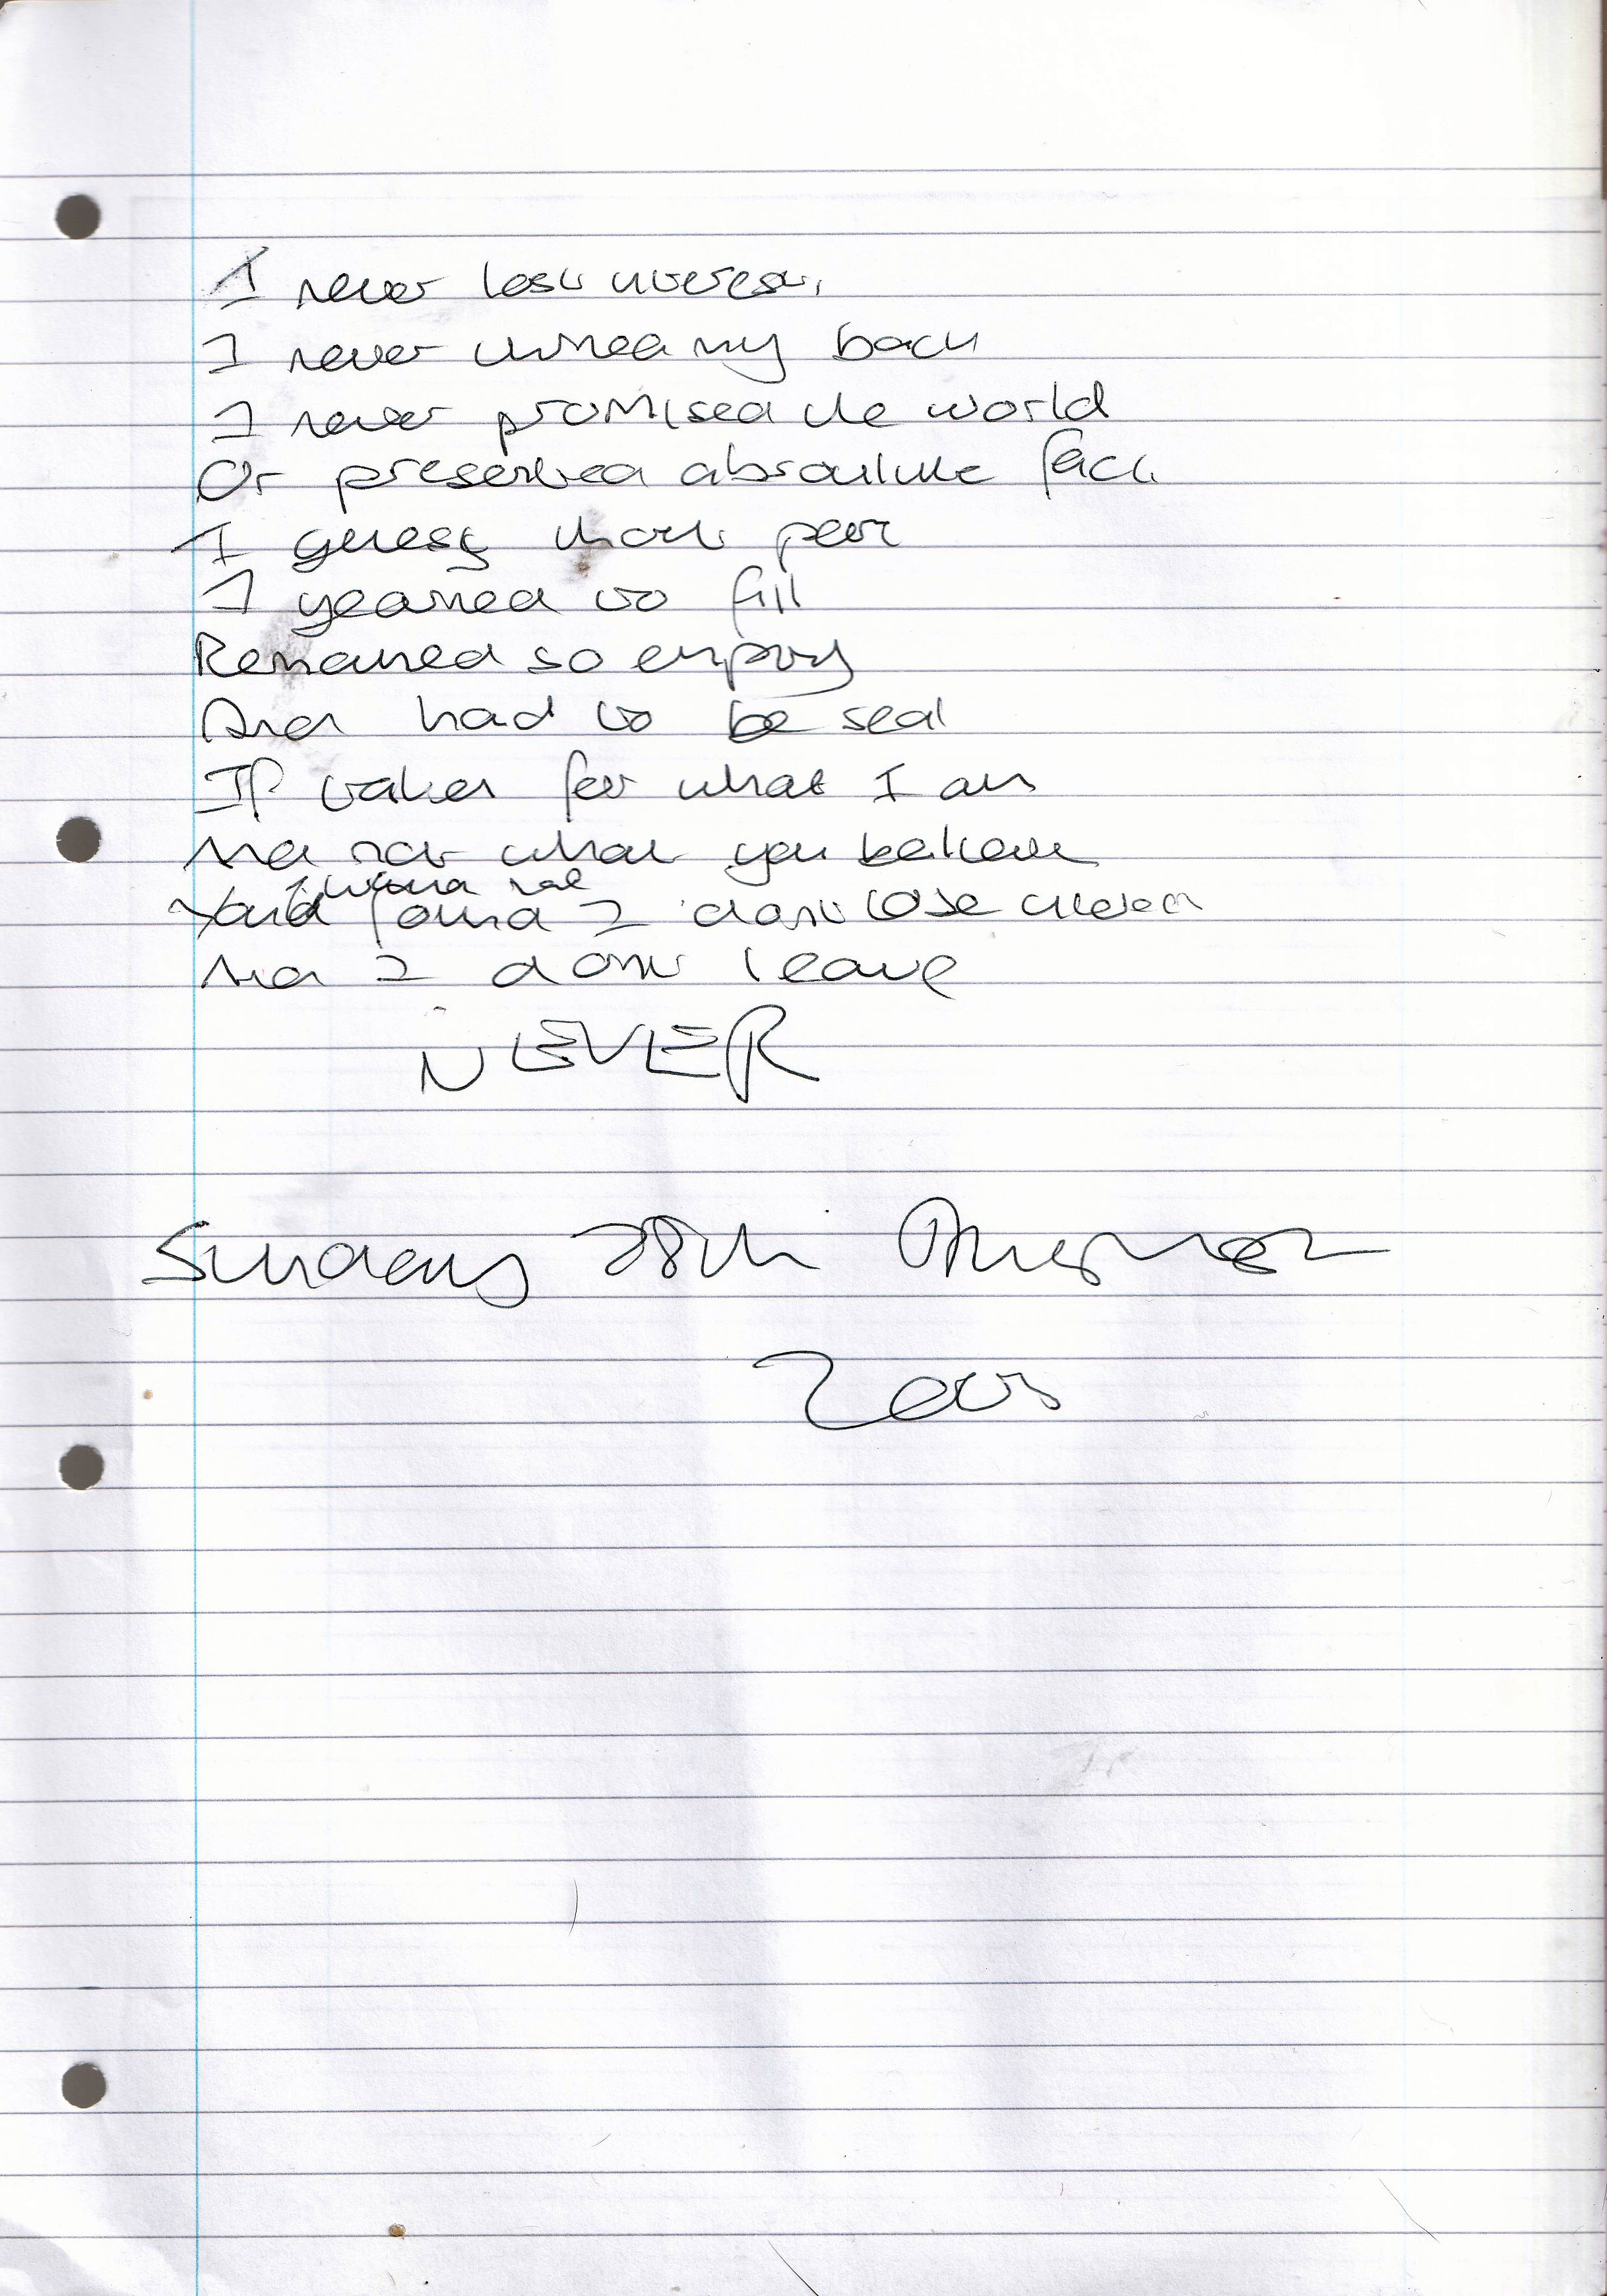 I never lost interest,
I never turned my back
I never promised the world
Or presented absolute fact
I guess that part
I yearned to fill
Remained so empty
And had to be seal
If taken for what I am
And not what you believe
found I don't lose interest
And I don't leave
NEVER
Sunday 28th August